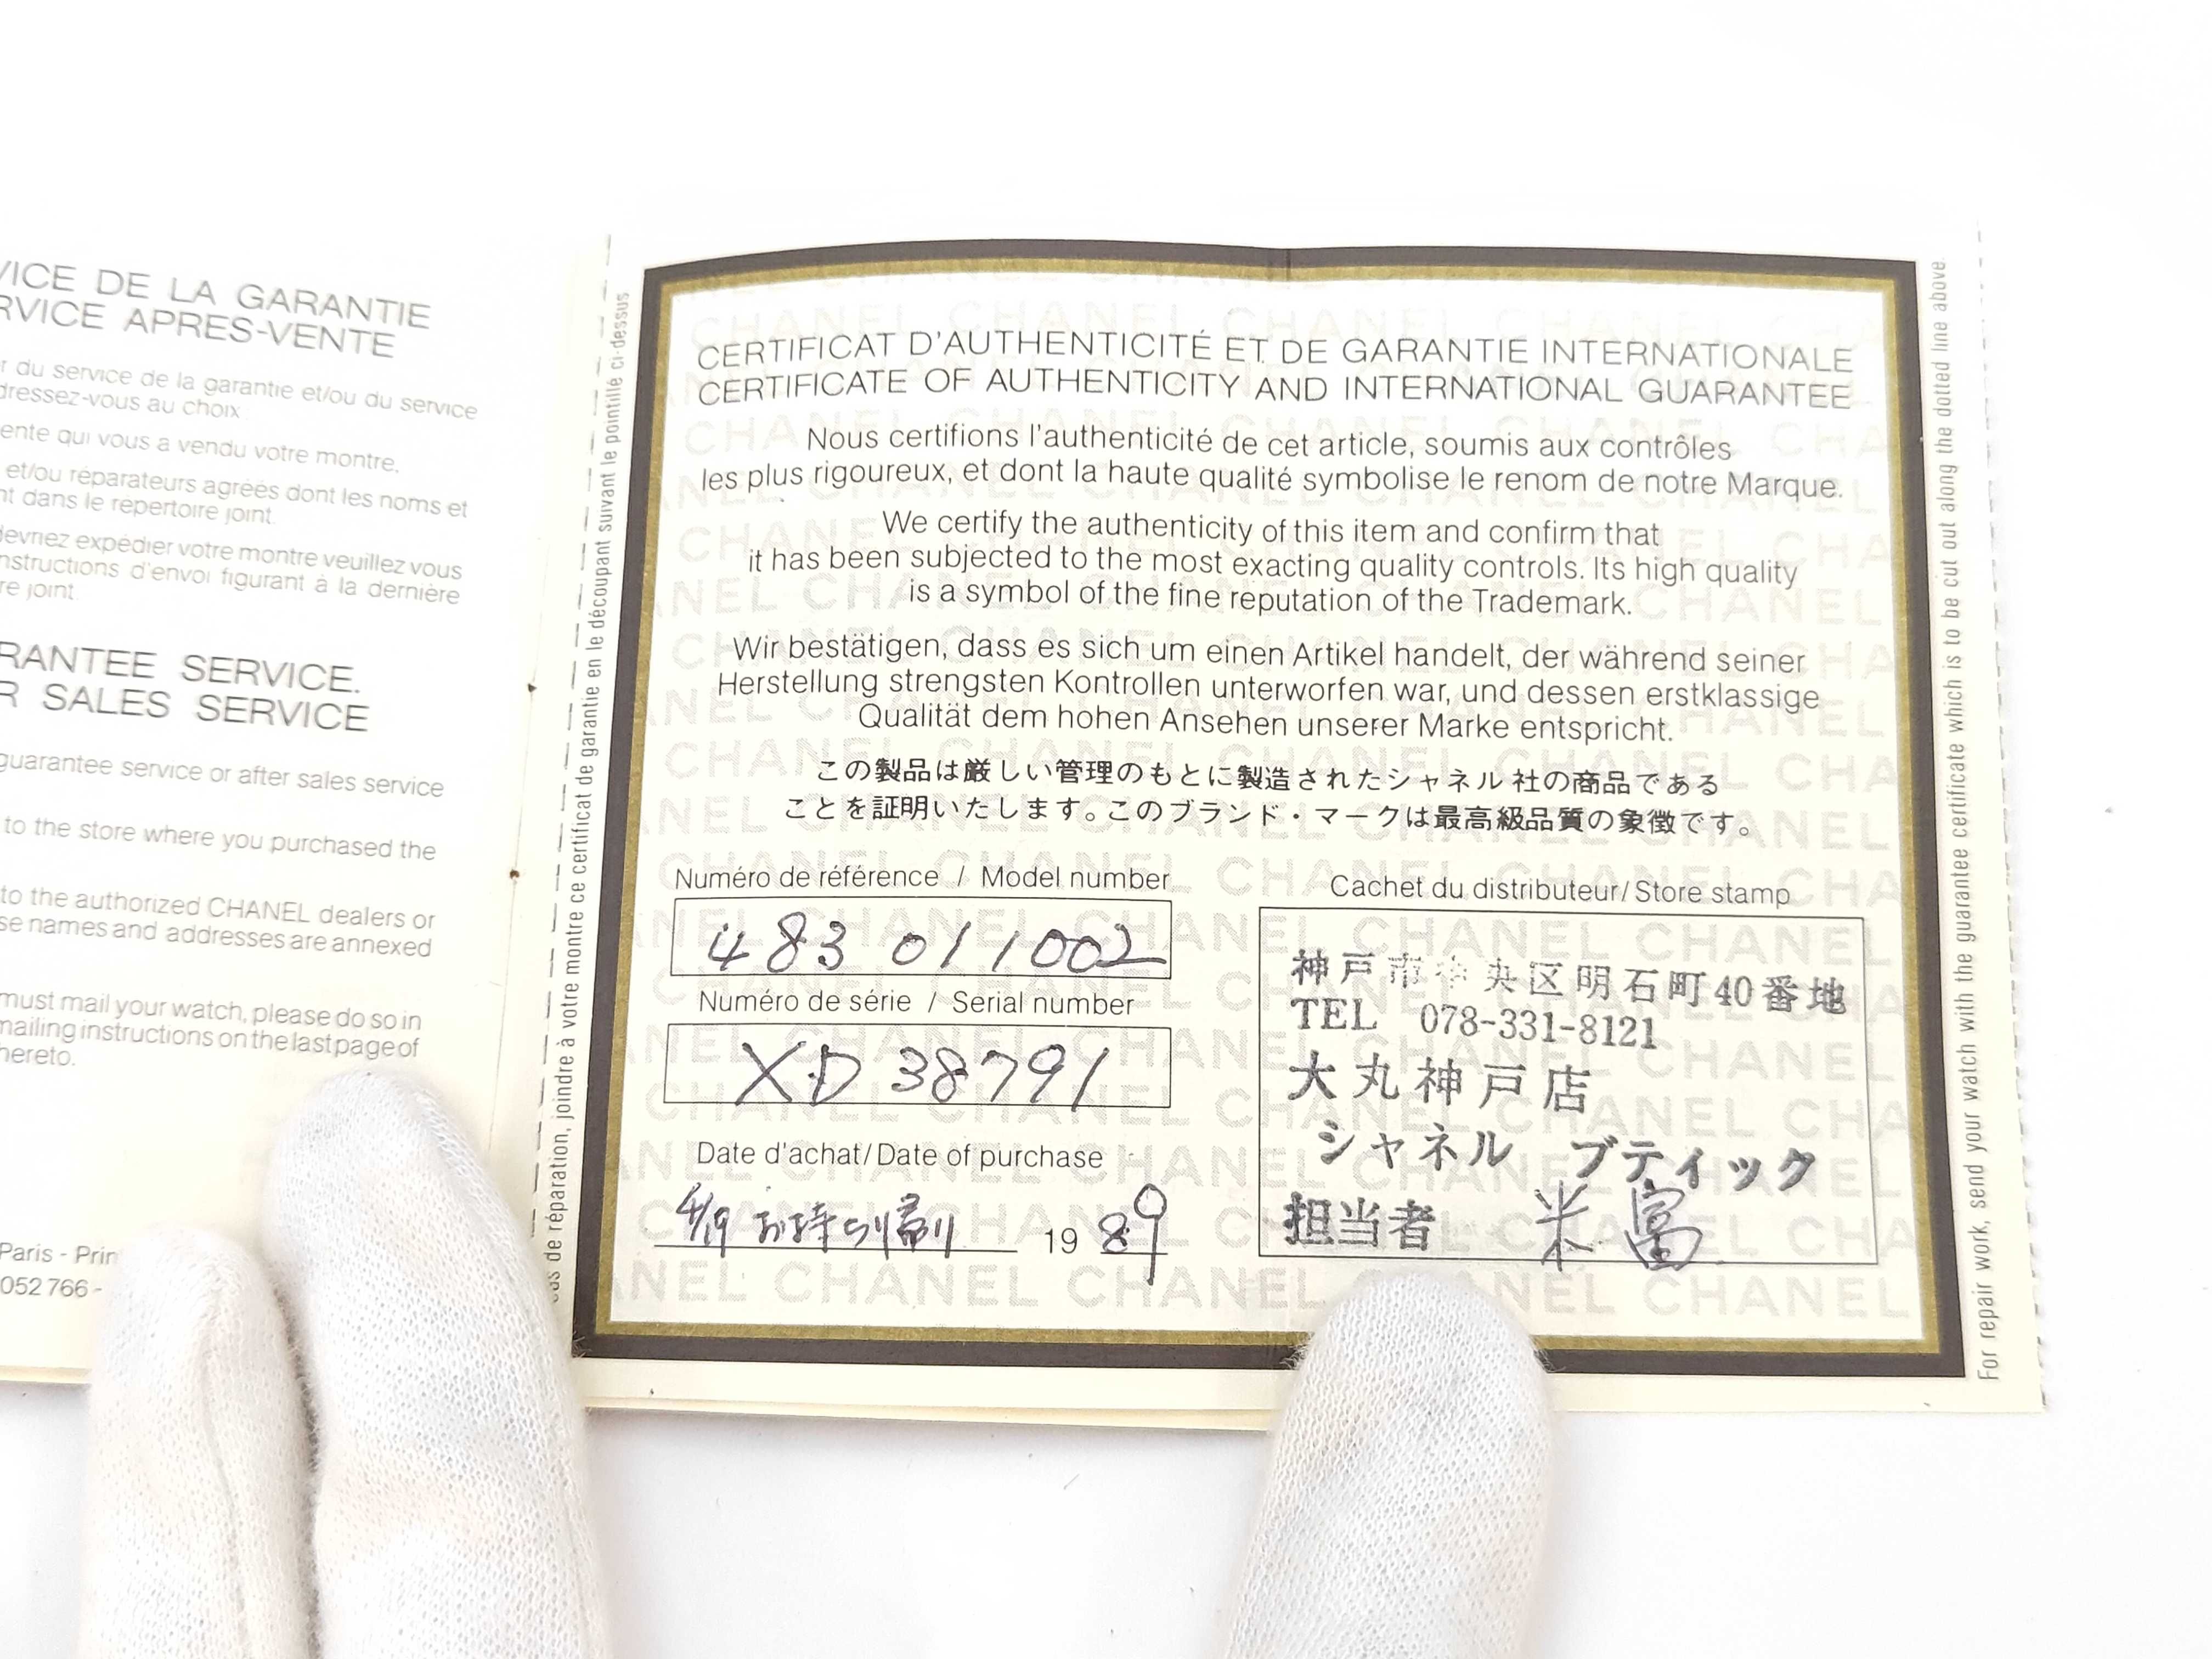 VICE DE LA GARANTIE
RVICE APRES-VENTE
r du service de la garantie et/ou du service
dressez-vous au choix
ente qui vous a vendu votre montre,
et/ou réparateurs agréés dont les noms et
nt dans le répertoire joint.
devriez expédier votre montre veuillez vous
nstructions d'envoi figurant à la dernière
re joint.
RANTEE SERVICE.
R SALES SERVICE
guarantee service or after sales service
to the store where you purchased the
to the authorized CHANEL dealers or
se names and addresses are annexed
must mail your watch, please do so in
mailing instructions on the last page of
hereto.
Paris - Prin
052 766 -
as de réparation, joindre à votre montre ce certificat de garantie en le découpant suivant le pointillé ci-dessus
CERTIFICAT D'AUTHENTICITÉ ET DE GARANTIE INTERNATIONALE
CERTIFICATE OF AUTHENTICITY AND INTERNATIONAL GUARANTEE
Nous certifions l'authenticité de cet article, soumis aux contrôles
les plus rigoureux, et dont la haute qualité symbolise le renom de notre Marque.
We certify the authenticity of this item and confirm that
it has been subjected to the most exacting quality controls. Its high quality
is a symbol of the fine reputation of the Trademark.
Wir bestätigen, dass es sich um einen Artikel handelt, der während seiner
Herstellung strengsten Kontrollen unterworfen war, und dessen erstklassige
Qualität dem hohen Ansehen unserer Marke entspricht.
この製品は厳しい管理のもとに製造されたシャネル社の商品である
ことを証明いたします。このブランド・マークは最高級品質の象徴です。
Numéro de référence / Model number
483 011002
Numéro de série / Serial number
XD 38791
Date d'achat/Date of purchase
4/19 お持ち帰り 19 89
Cachet du distributeur/Store stamp
神戸市中央区明石町40番地
TEL 078-331-8121
大丸神戸店
シャネル ブティック
担当者 米富
For repair work, send your watch with the guarantee certificate which is to be cut out along the dotted line above.